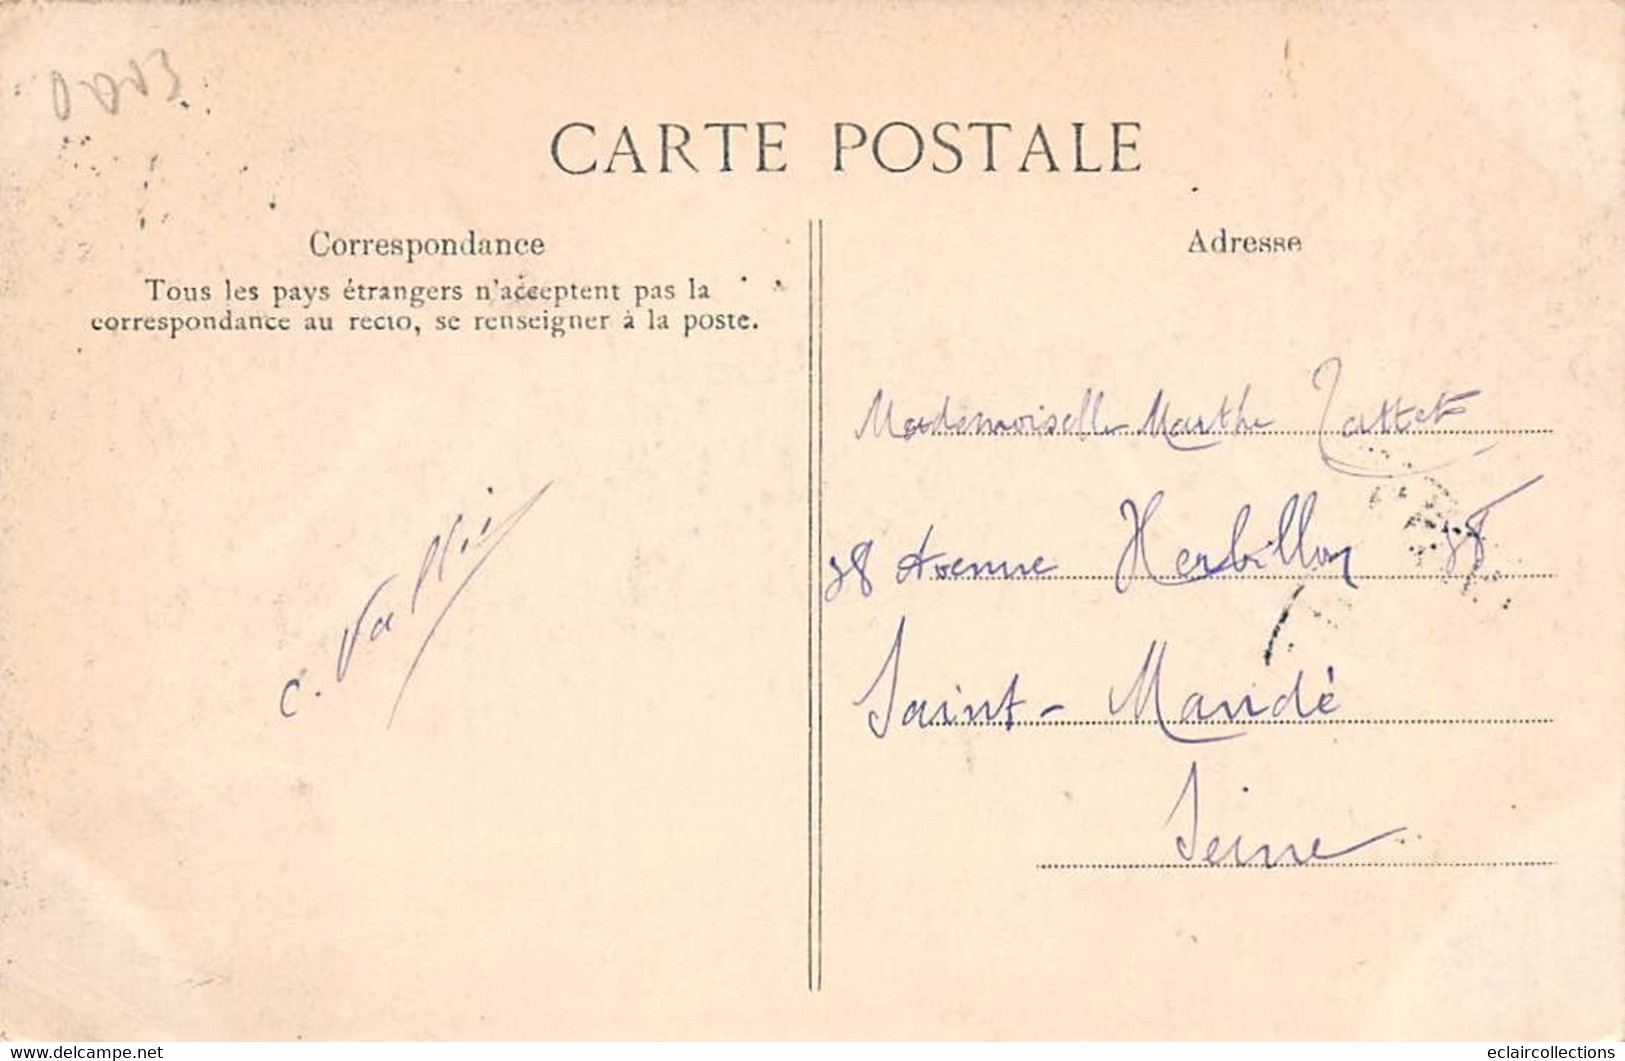 CARTE POSTALE
Correspondance
Tous les pays étrangers n'acceptent pas la
correspondance au recto, se renseigner à la poste.
Adresse
Mademoiselle Marthe Tattet
38 Avenue Herbillon 38
Saint-Mandé
Seine
C. Vallii
www.delcampe.net
eclaircollections